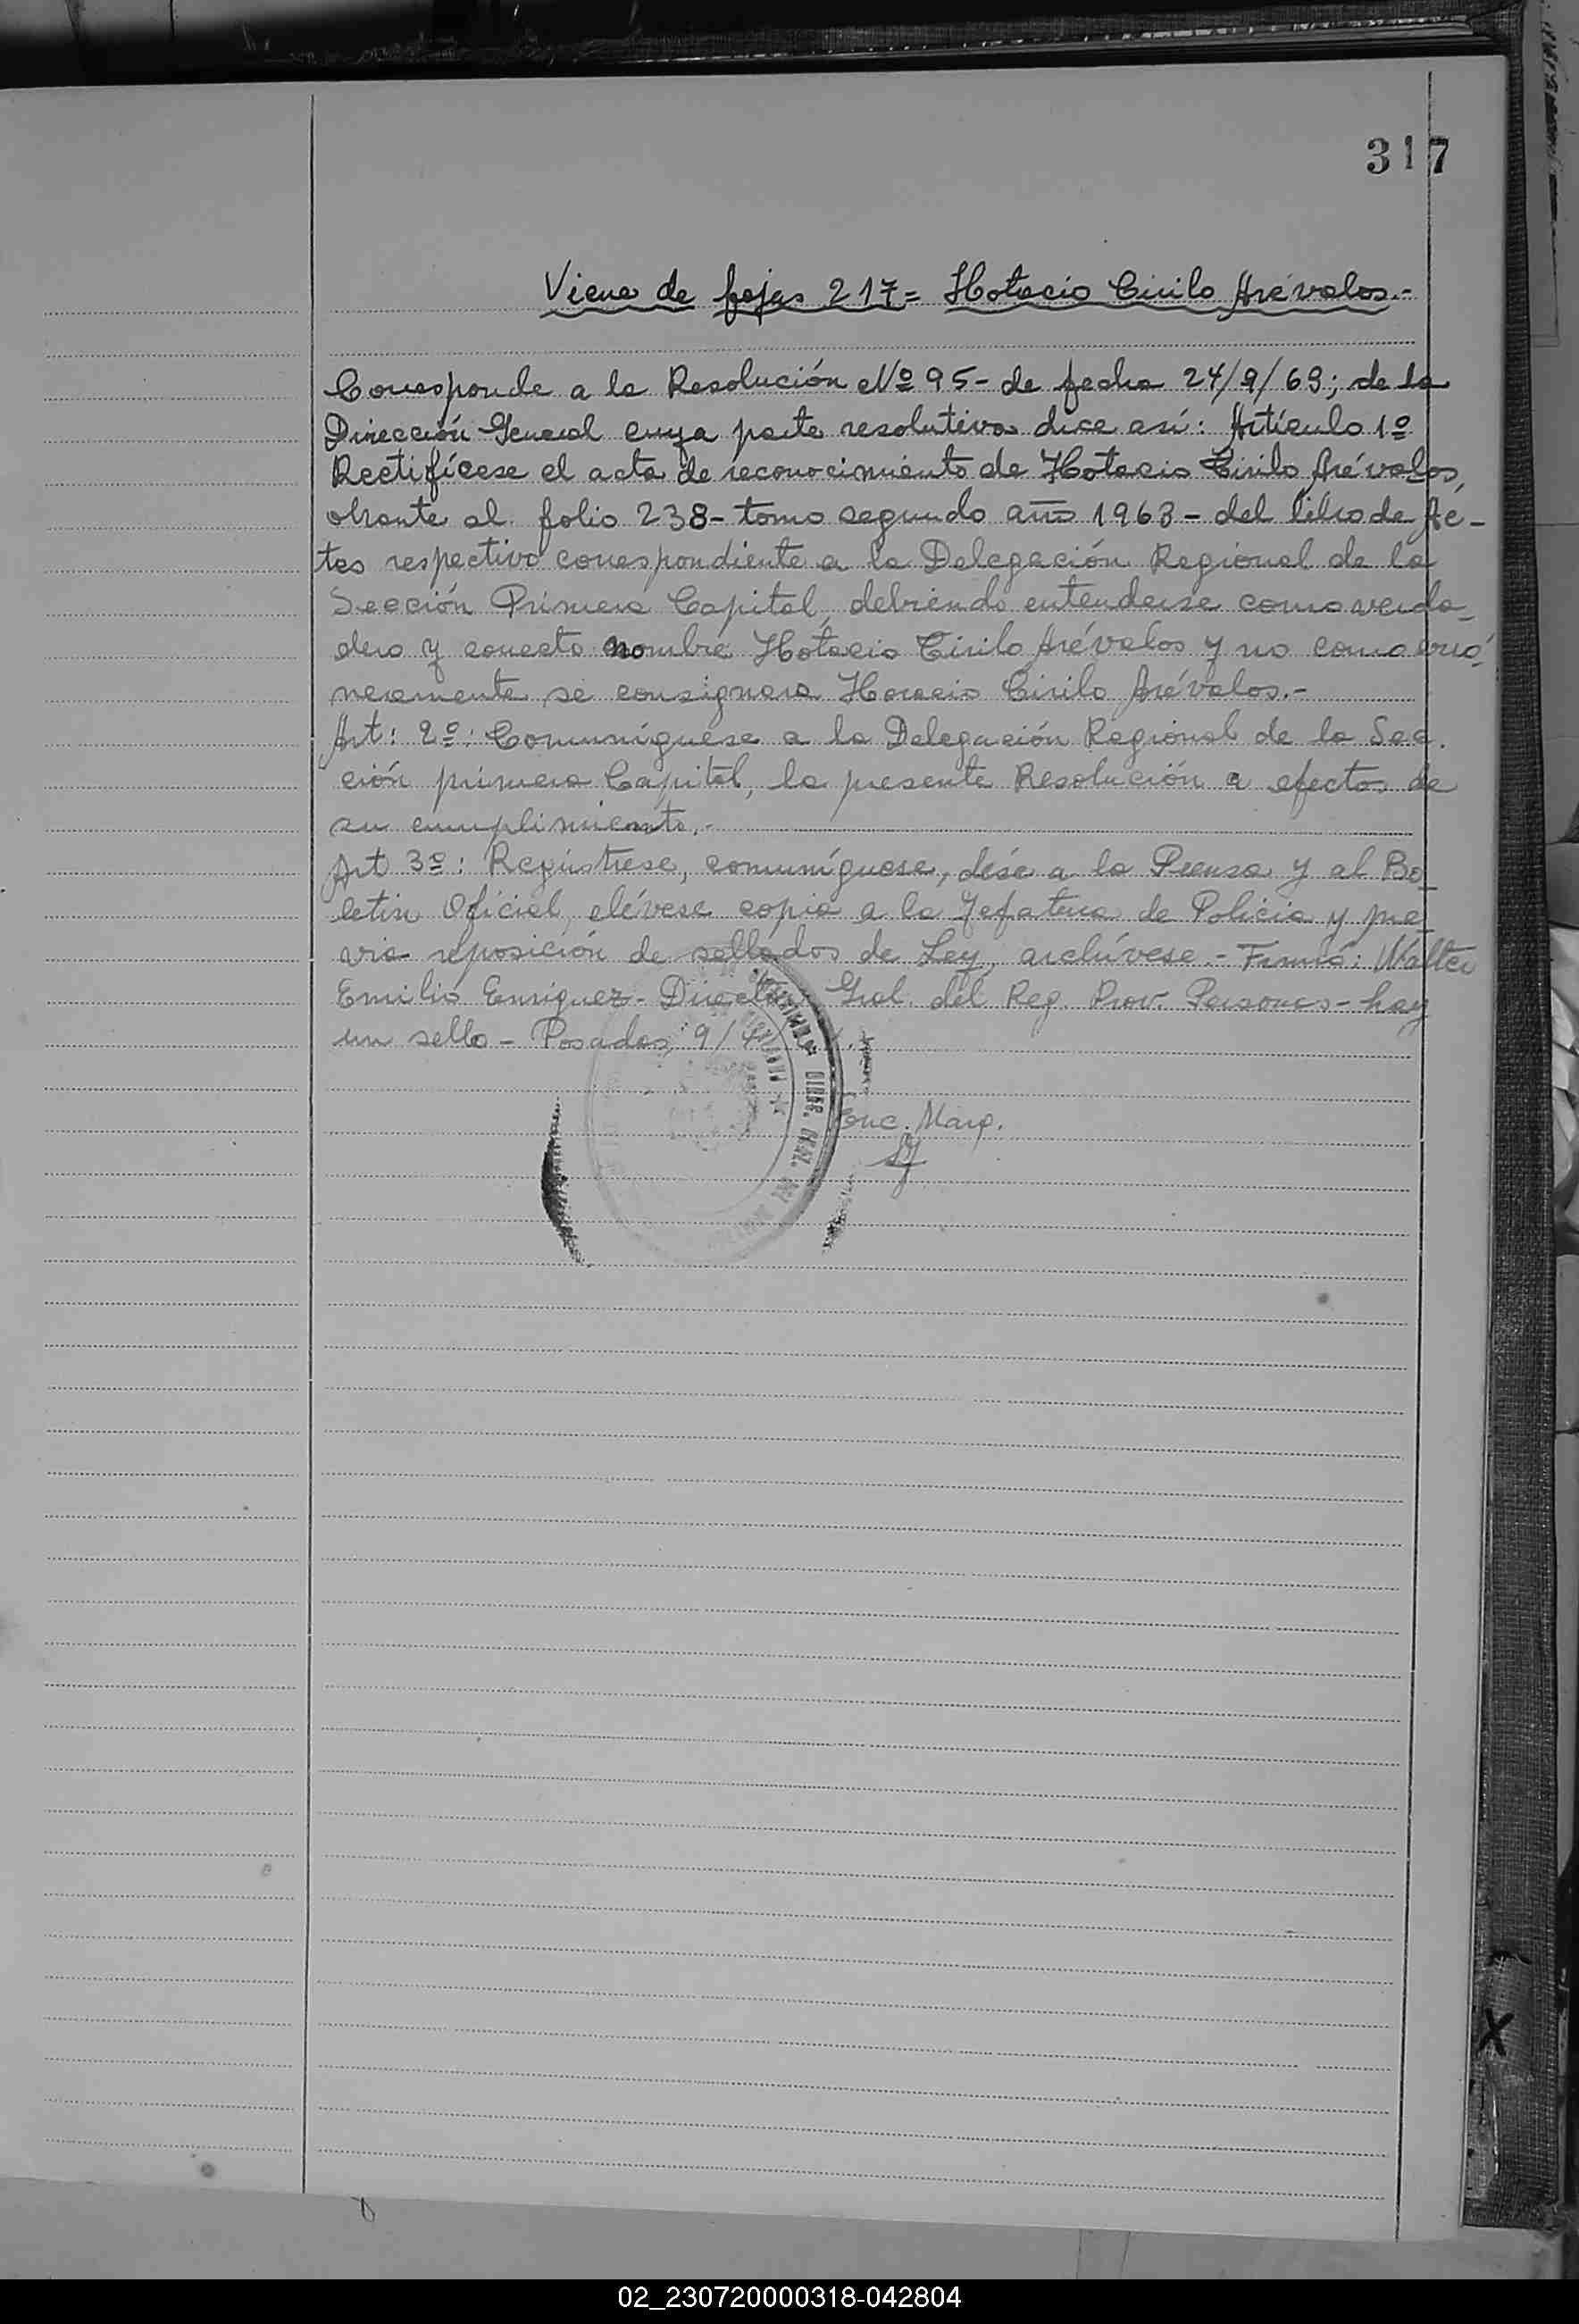 317
Viene de fojas 217= Hotacio Cirilo Arévalos.-
Corresponde a la Resolución Nº 95- de fecha 24/9/69; de la
Dirección General cuya parte resolutiva dice así: Artículo 1º
Rectifícese el acta de reconocimiento de Hotacio Cirilo Arévalos,
obrante al folio 238- tomo segundo año 1963- del libro de Ac-
tas respectivo correspondiente a la Delegación Regional de la
Sección Primera Capital, debiendo entenderse como verda-
dero y correcto nombre Hotacio Cirilo Arévalos y no como erró-
neamente se consignara Horacio Cirilo Arévalos.-
Art: 2º: Comuníquese a la Delegación Regional de la Sec-
ción primera Capital, la presente Resolución a efectos de
su cumplimiento.-
Art 3º: Regístrese, comuníquese, dése a la Prensa y al Bo-
letin Oficial, elévese copia a la Jefatura de Policia y pre-
via reposición de sellados de Ley, archívese.- Firmó: Walter
Emilio Enriquez- Director Gral. del Reg. Prov. Personas- hay
un sello- Posadas, 9/
DIREC. GRAL.
Enc. Marg.
X
02_230720000318-042804